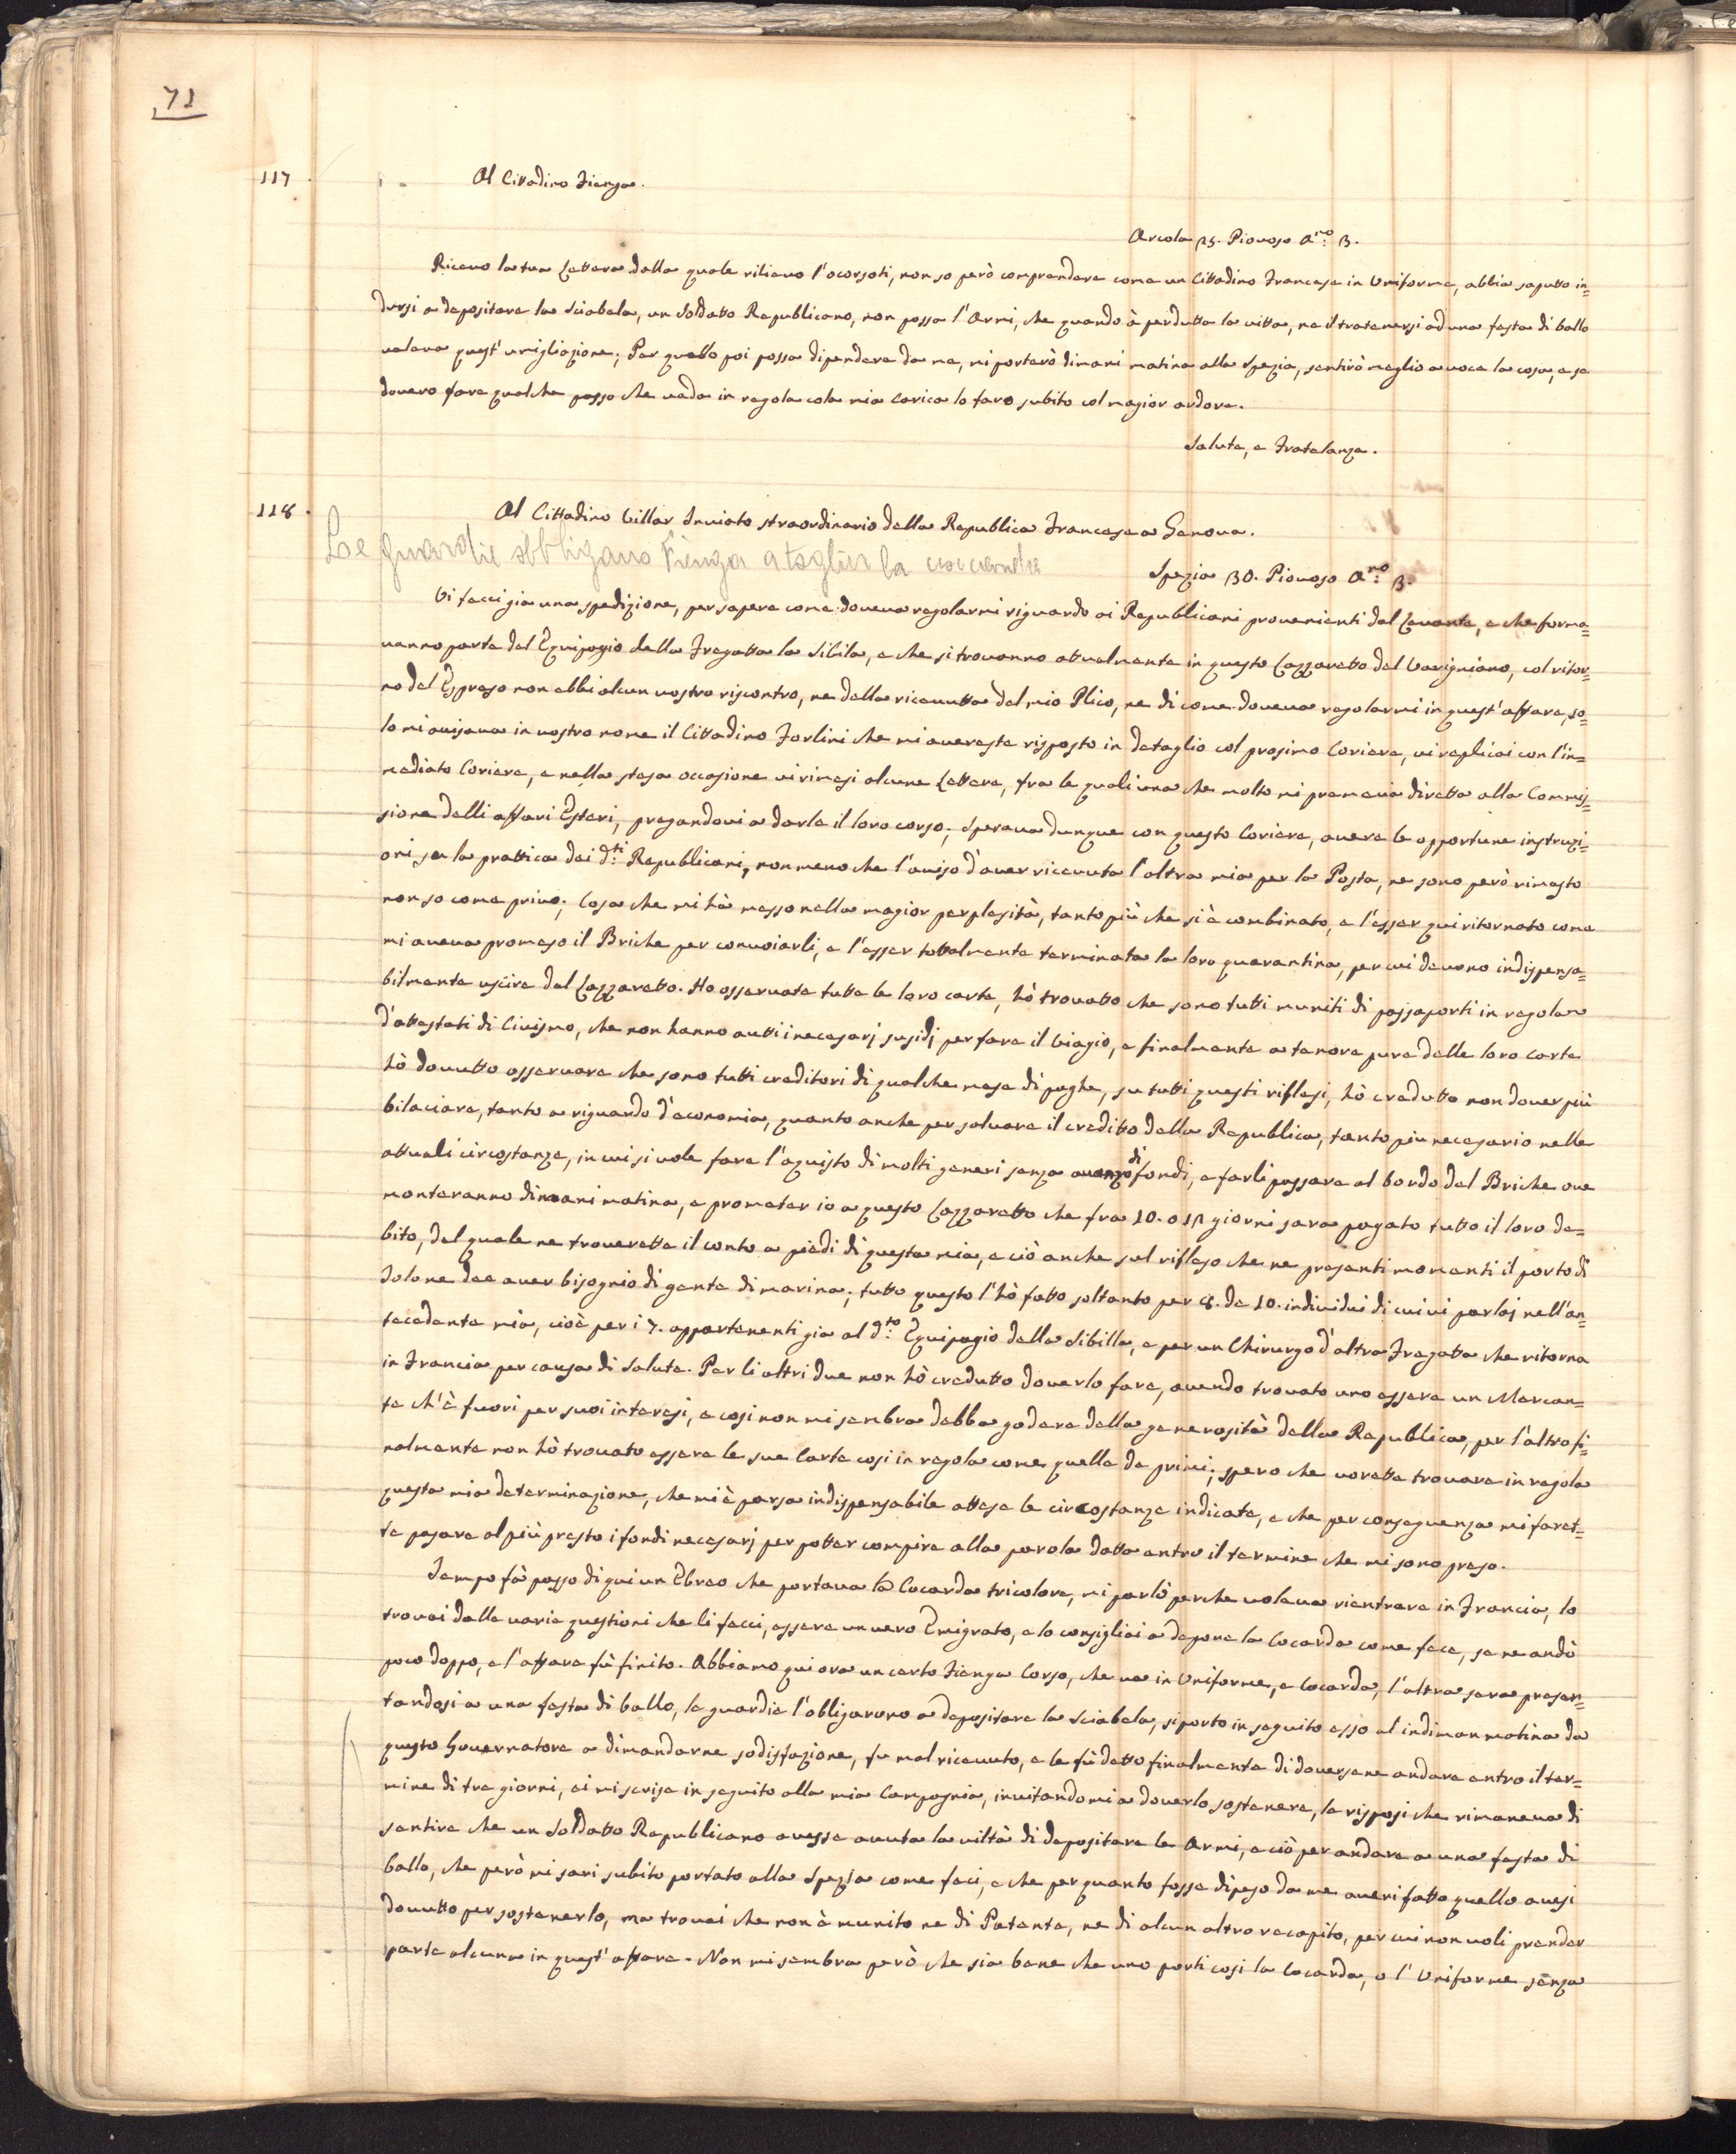 71
117.
Al Cittadino Fienga.
Arcola 25. Piovoso A:no 3.
Ricevo la tua Lettera dalla quale rilievo l'ocorsoti, non so però comprendere come un Cittadino Francese in Uniforme, abbia saputto in=
dursi a depositare la Sciabela, un Soldatto Republicano, non possa l'Armi, che quando à perdutta la vitta, ne il tratenersi ad una festa di ballo
valeva quest'umigliazione; Per quello poi possa dipendere da me, mi porterò dimani matina alla Spezia, sentirò meglio a voce la cosa, e se
dovero fare qualche passo che vada in regola cola mia Carica lo faro subito col magior ardore.
Salute, e Fratelanza.
118.
Al Cittadino Villar Inviato straordinario della Republica Francese a Genova.
Le guardie obbligano Fienga a toglier la coccarda
Spezia 30. Piovoso A:no 3.
Vi facci gia una spedizione, per sapere come doveva regolarmi riguardo ai Republicani provenienti dal Levante, e che forma=
vanno parte del Equipagio della Fregatta la Sibila, e che si trovanno attualmente in questo Lazzaretto del Varigniano, col ritor=
no del Espreso non ebbi alcun vostro riscontro, ne della ricevutta del mio Plico, ne di come doveva regolarmi in quest'affare, so=
lo mi avisava in vostro nome il Cittadino Forlini che mi avereste risposto in detaglio col prosimo Coriere, vi replicai con l'im=
mediato Coriere, e nella stesa occasione vi rimesi alcune Lettere, fra le quali una che molto mi premeva diretta alla Commis=
sione delli affari Esteri, pregandovi a darle il loro corso; Sperava dunque con questo Coriere, avere le opportune instruzi=
oni su la prattica dei d:ti Republicani, non meno che l'aviso d'aver ricevuta l'altra mia per la Posta, ne sono però rimasto
non so come privo; Cosa che mi hà messo nella magior perplesità, tanto più che si è combinato, e l'esser qui ritornato come
mi aveva promeso il Briche per convoiarli, e l'esser tottalmente terminata la loro quarantina, per cui devono indispensa=
bilmente uscire dal Lazzaretto. Ho osservate tutte le loro carte, hò trovatto che sono tutti muniti di passaporti in regola
d'attestati di Civismo, che non hanno avuti i necesarj susidj per fare il viagio, e finalmente a tenore pure delle loro carte
hò dovutto osservare che sono tutti creditori di qualche mese di paghe, su tutti questi riflesi, hò credutto non dover più
bilaciare, tanto a riguardo d'economia, quanto anche per salvare il creditto della Republica, tanto più necesario nelle
attuali circostanze, in cui si vole fare l'aquisto di molti generi senza avanzo di fondi, e farli passare al bordo del Briche ove
monteranno dimani matina, e prometer io a questo Lazzaretto che fra 10. o 12 giorni sara pagato tutto il loro de=
bito, del quale ne troverette il conto a piedi di questa mia, e ciò anche sul rifleso che ne presenti momenti il porto di
Tolone dee aver bisognio di gente di marina; tutto questo l'hò fatto soltanto per 8. de 10. individui di cui vi parlaj nell'an=
tecedente mia, cioè per i 7. appartenenti gia al d:to Equipagio della Sibilla, e per un Chirurgo d'altra Fregatta che ritorna
in Francia per causa di Salute. Per li altri due non hò credutto doverlo fare, avendo trovato uno essere un Mercan=
te ch'è fuori per suoi interesi, e cosi non mi sembra debba godere della generosità della Republica, per l'altro fi=
nalmente non hò trovato essere le sue Carte cosi in regola come quelle de primi; spero che vorette trovare in regola
questa mia determinazione, che mi è parsa indispensabile attese le circostanze indicate, e che per conseguenza mi faret=
te pasare al più presto i fondi necesarj per potter compire alla parola datta entro il termine che mi sono preso.
Tempo fà passo di qui un Ebreo che portava la Cocarda tricolore, mi parlò perche voleva rientrare in Francia, lo
trovai dalle varie questioni che li facci, essere un vero Emigrato, e lo consigliai a depone la Cocarda come fece, se ne andò
poco doppo, e l'affare fù finito. Abbiamo qui ora un certo Fienga Corso, che va in Uniforme, e Cocarda, l'altra sera presen=
tandosi a una festa di ballo, le guardie l'obligarono a depositare la Sciabela, si porto in seguito esso al indiman matina da
questo Governatore a dimandarne sodisfazione, fu mal ricevuto, e le fù detto finalmente di doversene andare entro il ter=
mine di tre giorni, ei mi scrise in seguito alla mia Campagnia, invitandomi a doverlo sostenere, le risposi che rimaneva di
sentire che un Soldatto Republicano avesse avuta la viltà di depositare le Armi, e ciò per andare a una festa di
ballo, che però mi sari subito portato alla Spezia come feci, e che per quanto fosse dipeso da me averi fatto quello avesi
dovutto per sostenerlo, ma trovai che non è munito ne di Patente, ne di alcun altro recapito, per cui non voli prender
parte alcuna in quest'affare. Non mi sembra però che sia bene che uno porti cosi la Cocarda, o l'Uniforme senza